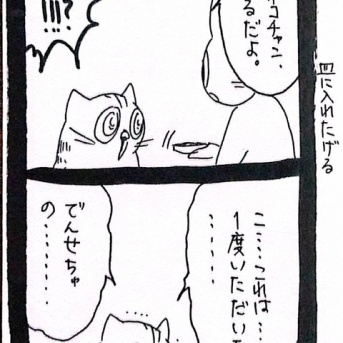 コチャン、
るだよ。
!!!?
皿に入れたげる
こ……これは……
1度いただいた
………
でんせちゅ
の………